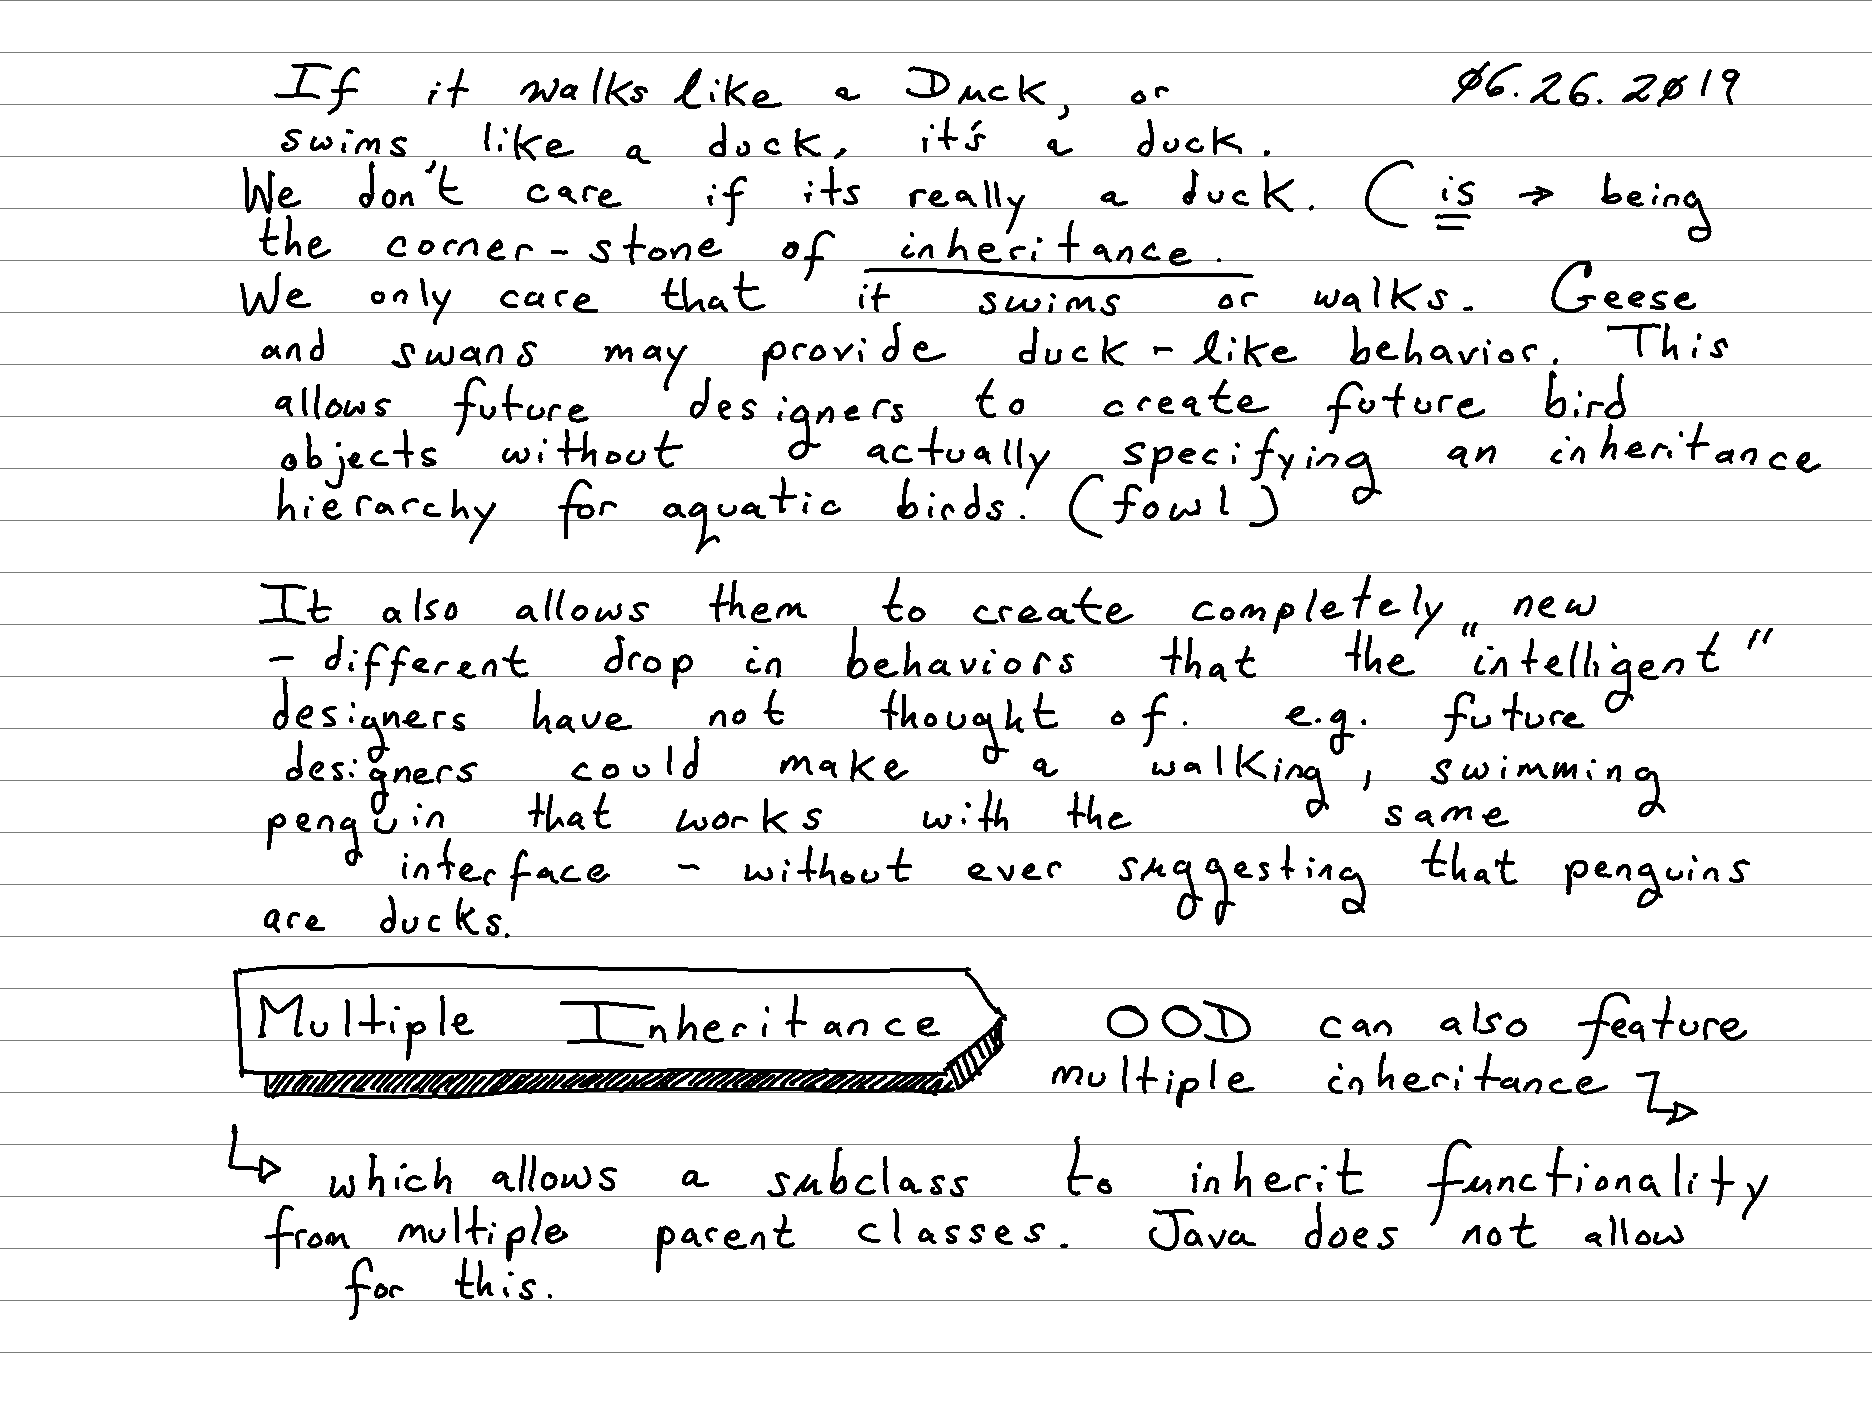 If it walks like a Duck, or 06.26.2019
swims like a duck, it's a duck.
We don't care if its really a duck. (is → being
the corner-stone of inheritance.
We only care that it swims or walks. Geese
and swans may provide duck-like behavior. This
allows future designers to create future bird
objects without actually specifying an inheritance
hierarchy for aquatic birds. (fowl)
It also allows them to create completely new
- different drop in behaviors that the "intelligent"
designers have not thought of. e.g. future
designers could make a walking, swimming
penguin that works with the same
interface - without ever suggesting that penguins
are ducks.
Multiple Inheritance OOD can also feature
multiple inheritance ↳
↳ which allows a subclass to inherit functionality
from multiple parent classes. Java does not allow
for this.